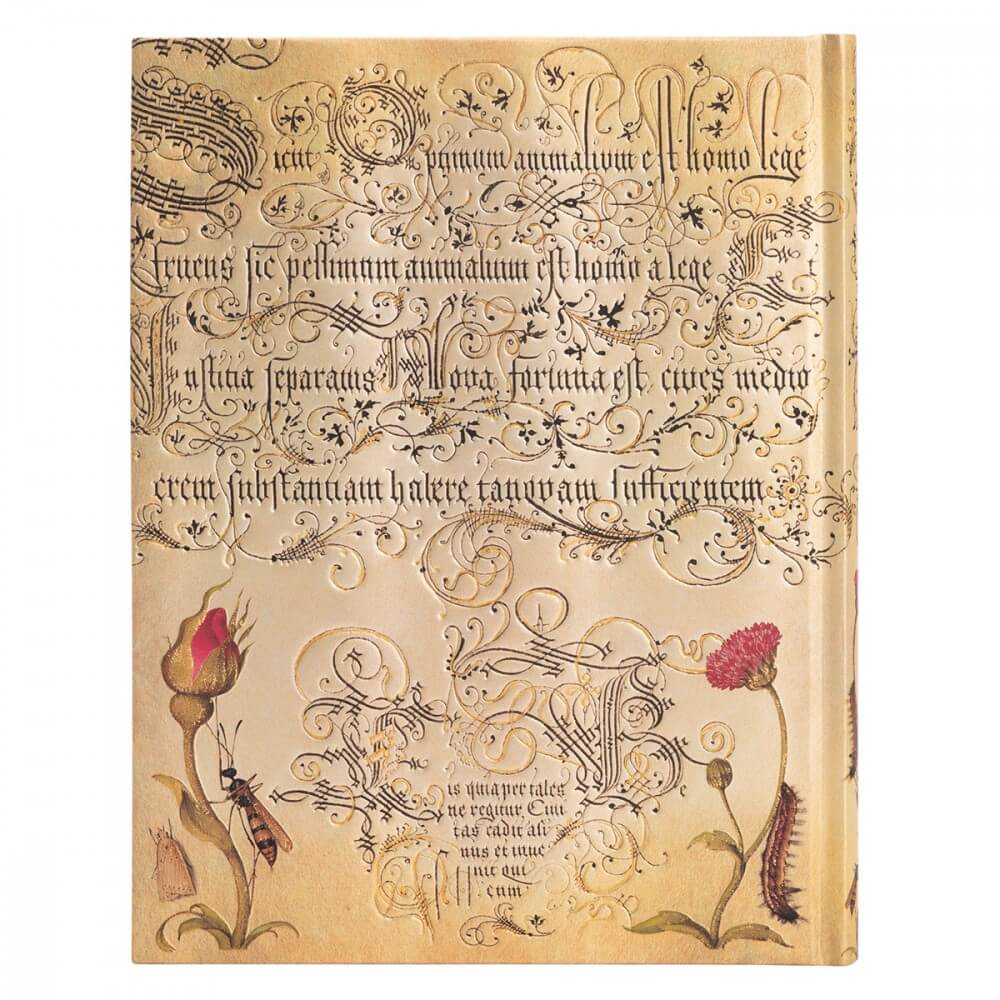 Dicut Optimum animalium est homo lege
fruens sic pessimum animalium est homo a lege Et
Iustitia separatus Nova fortuna est, cives medio
crem substantiam habere tanquam sufficientem
is quia per tales
ne regitur Civi
tas cadit asi
nus et inve
nit qui
eum